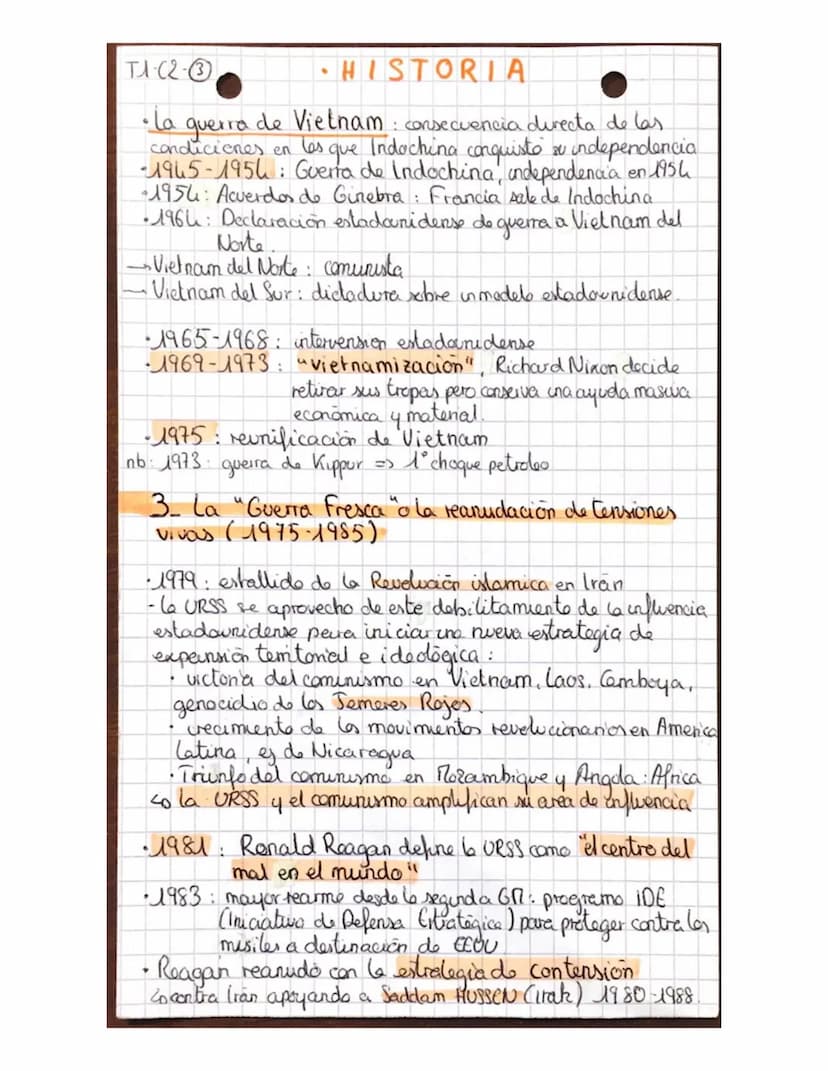 T1-C2-③ · HISTORIA
· La guerra de Vietnam : consecuencia directa de las
condiciones en las que Indochina conquistó su independencia
· 1945-1954 : Guerra de Indochina, independencia en 1954
· 1954 : Acuerdos de Ginebra : Francia sale de Indochina
· 1964 : Declaración estadounidense de guerra a Vietnam del
Norte.
→ Vietnam del Norte : comunista
→ Vietnam del Sur : dictadura sobre un modelo estadounidense.
· 1965-1968 : intervension estadounidense
· 1969-1973 : "vietnamización", Richard Nixon decide
retirar sus tropas pero conserva una ayuda masiva
económica y material.
· 1975 : reunificación de Vietnam
nb : 1973 : guerra de Kippur => 1° choque petroleo
3_ La "Guerra Fresca" o la reanudación de tensiones
vivas (1975-1985)
· 1979 : estallido de la Revolución islamica en Irán
- la URSS se aprovecho de este debilitamiento de la influencia
estadounidense para iniciar una nueva estrategia de
expansión territorial e ideológica :
· victoria del comunismo en Vietnam, Laos, Camboya,
genocidio de los Jemeres Rojos.
· crecimiento de los movimientos revolucionarios en America
Latina, ej de Nicaragua
· Triunfo del comunismo en Mozambique y Angola : Africa
↳ la URSS y el comunismo amplifican su area de influencia
· 1981 : Ronald Reagan define la URSS como "el centro del
mal en el mundo"
· 1983 : mayor rearme desde la segunda GM : programo iDE
(Iniciativa de Defensa Estratégica) para proteger contra los
misiles a destinación de EEUU
· Reagan reanudó con la estrategia de contensión
↳ contra Irán apoyando a Saddam HUSSEN (irak) 1980-1988.